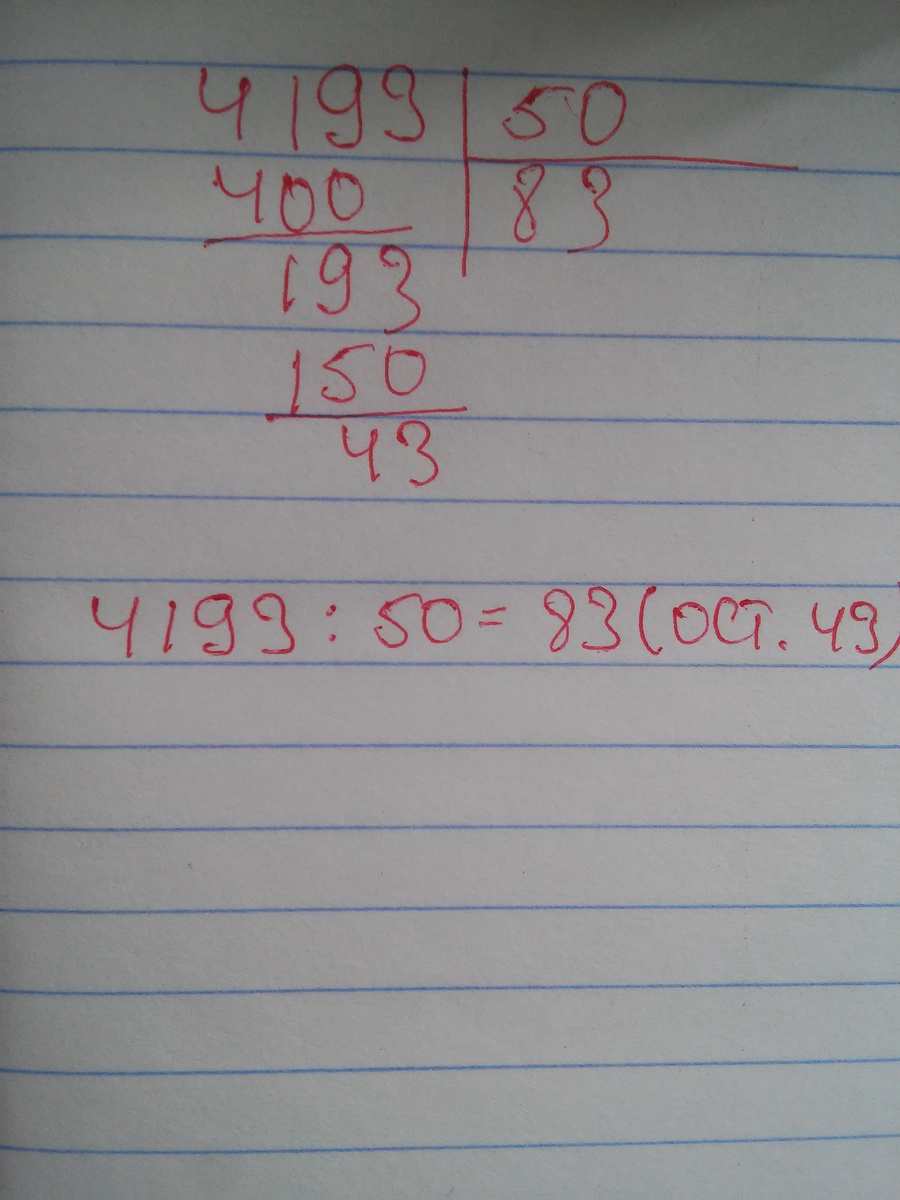 4193 50
400 83
193
150
43
4193 : 50 = 83 (ост. 43)